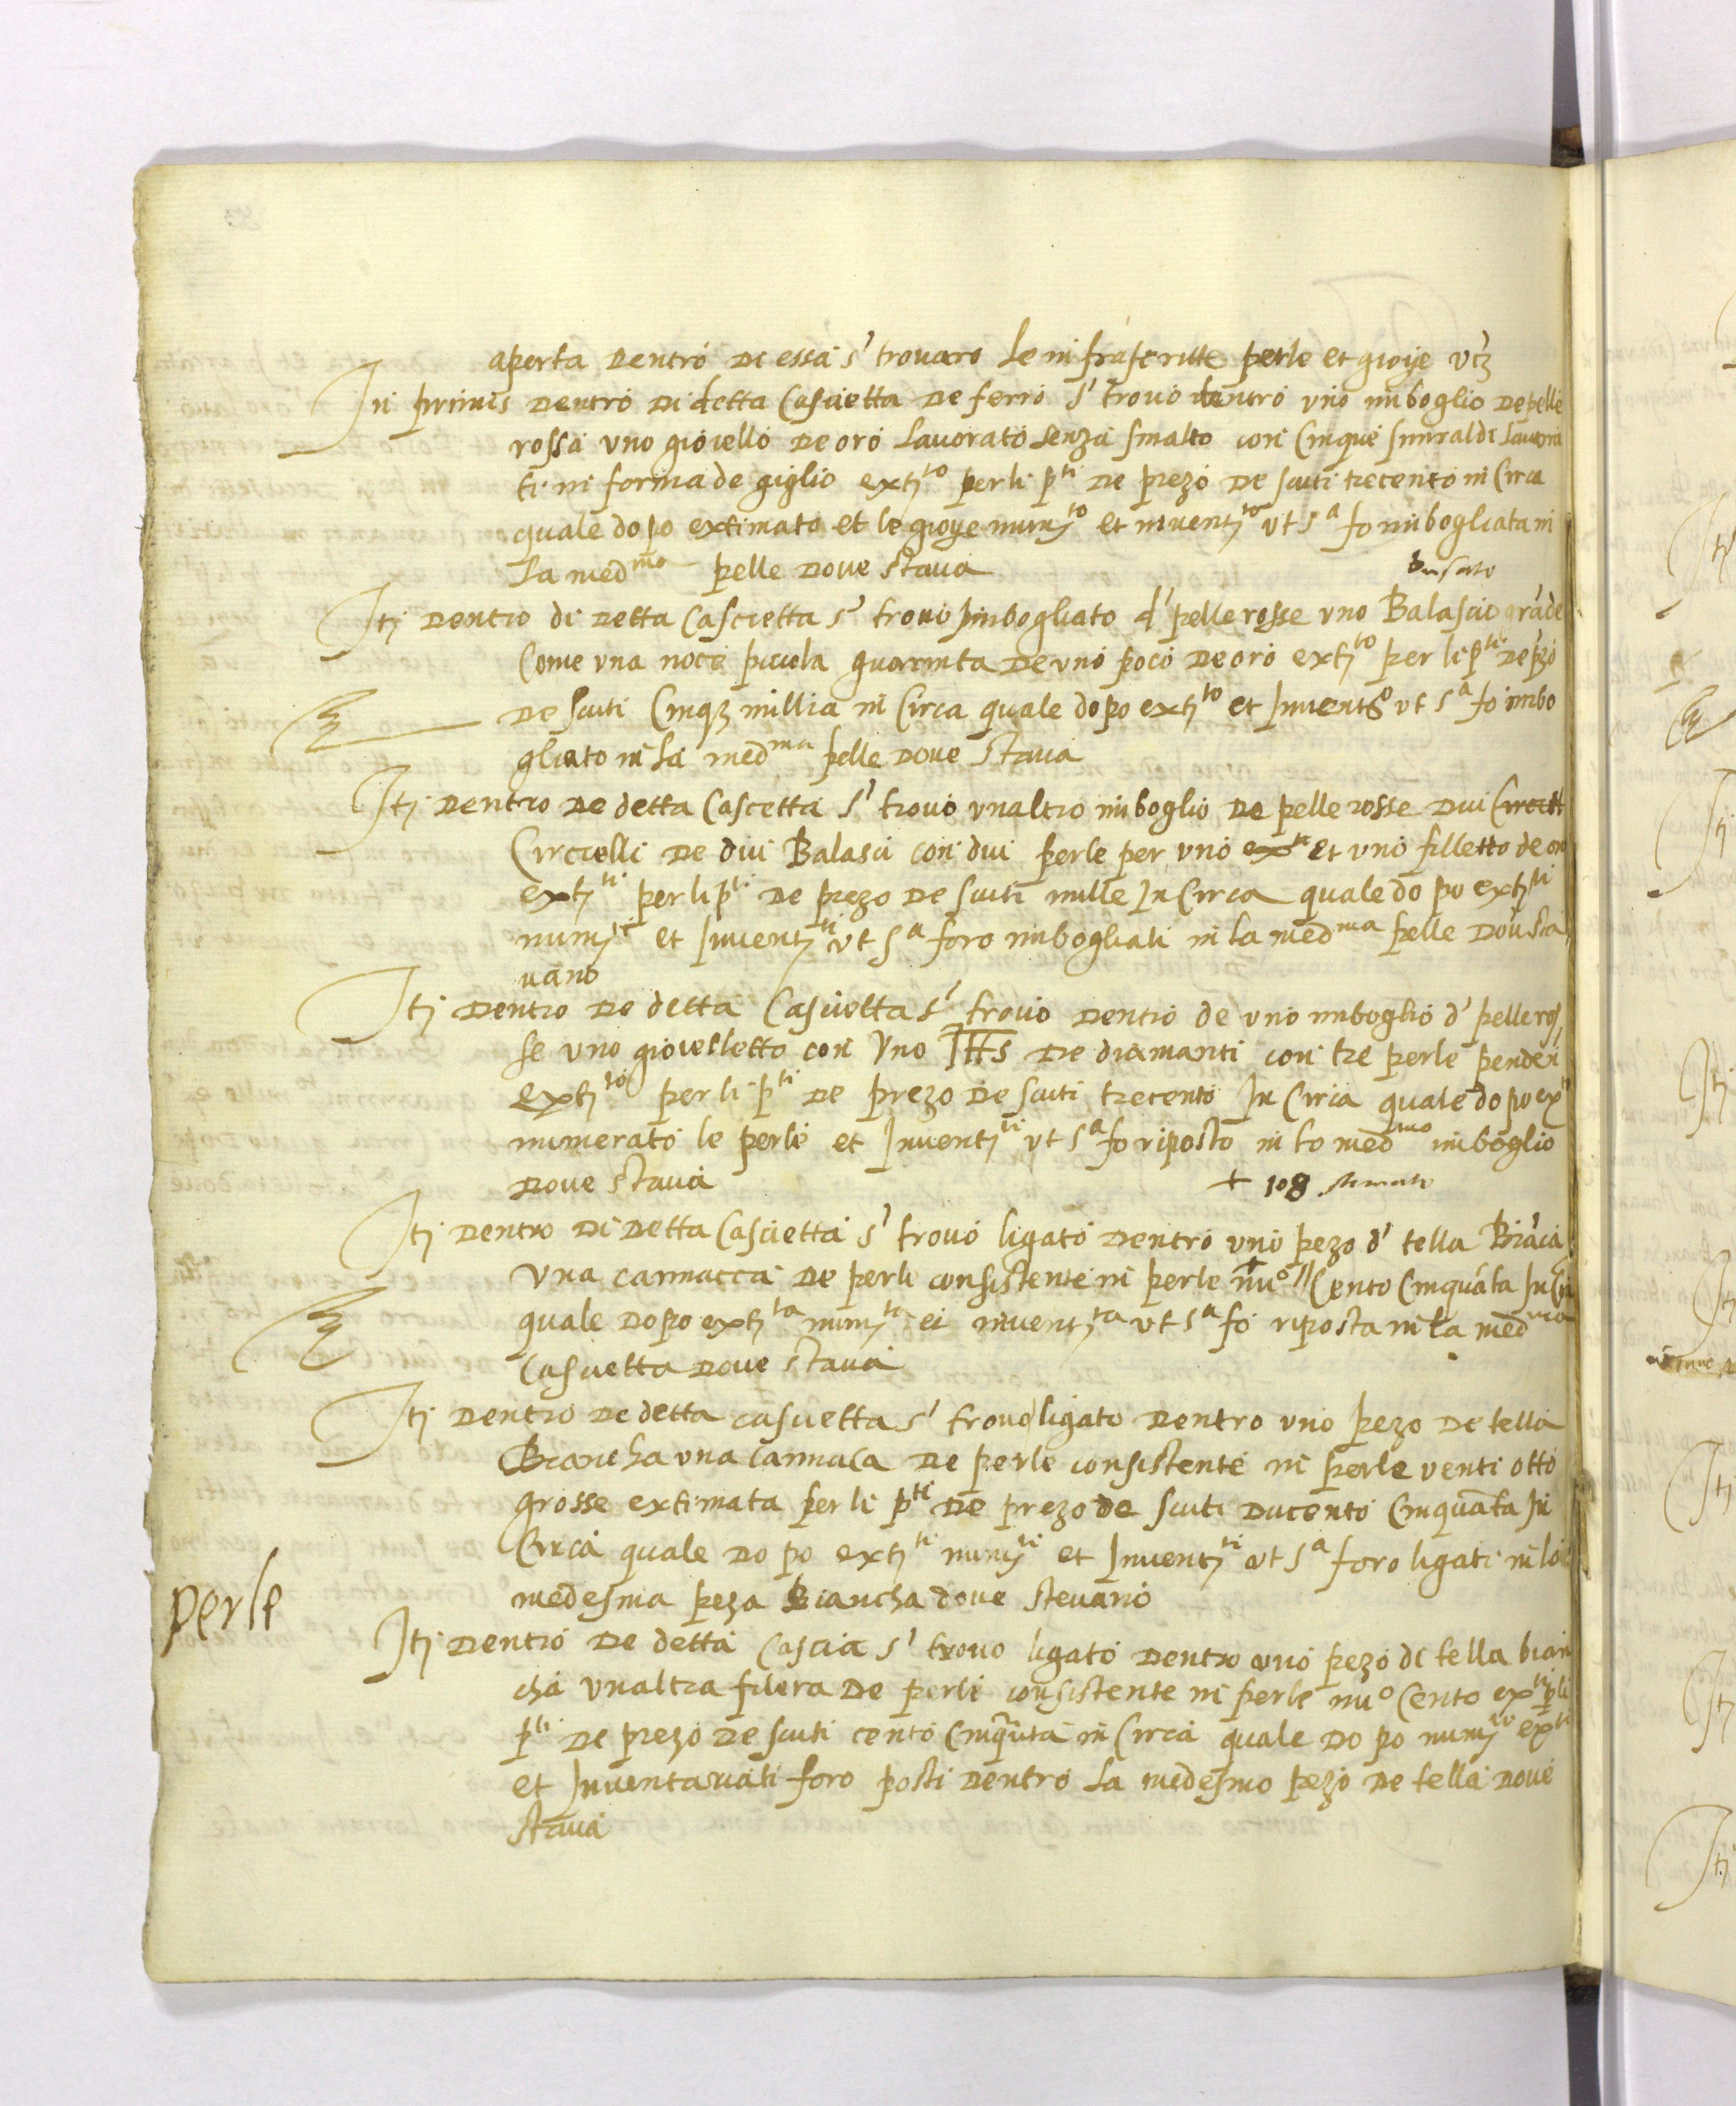 aperta dentro di essa s' trovaro le infrascritte perle et gioye vcz
In primis dentro di detta Cascietta de ferro s' trovò dentro uno imboglio de pelle
rossa uno gioiello de oro lavorato senza smalto con Cinque smiraldi lavora
ti in forma de giglio extito per li pti de prezo de scuti trecento in Circa
quale dopo extimato et le gioye numto et inventto ut sa fo imbogliata in
La medmo pelle dove stava
busato
Iti dentro di detta Cascietta s' trovò imbogliato d' pelle rosse uno Balascio grade
Come una noce picola guarnita de uno poco de oro extto per li pti de pzo
de scuti Cinqz millia in Circa quale dopo extto et Invento ut sa fo imbo
gliato in la medma pelle dove stava
Iti dentro de detta Cascetta s' trovò unaltro imboglio de pelle rosse dui Circell
Circielli de dui Balasci con dui perle per uno exti et uno filletto de oro
extti per li pti de prezo de scuti mille In Circa quale dopo extti
numti et Inventti ut sa foro imbogliati in la medma pelle dov' sta
vano
Iti dentro de detta Cascietta s' trovò dentro de uno imboglio d' pelle ros
se uno gioielletto con Uno IHs de diamanti con tre perle penden
extto per li pti de prezo de scuti trecento In Circa quale dopo ext
numerato le perle et Inventti ut sa fo riposto in lo medmo imboglio
dove stava
+ 108
Iti dentro di detta Cascietta s' trovò ligato dentro uno pezo d' tella Biaca
Una cannacca de perle consistente in perle nuo // Cento Cinquata In Cir
quale dopo extta numta et inventta ut sa fo riposta in la medma
Cascietta dove stava
Iti dentro de detta cascietta s' trovò ligato dentro uno pezo de tella
Biancha una cannaca de perle consistente in perle venti otto
grosse extimata per li pti de prezo de scuti ducento Cinquata In
Circa quale dopo extti numti et Inventti ut sa foro ligati in la
medesma peza biancha dove stevano
perle
Iti dentro de detta Cascia s' trovo ligato dentro uno pezo di tella bian
cha unaltra filera de perle consistente in perle nuo Cento exti p li
pti de prezo de scuti cento Cinquta in Circa quale dopo numto exti
et Inventariati foro posti dentro la medesmo pezo de tella dove
stava